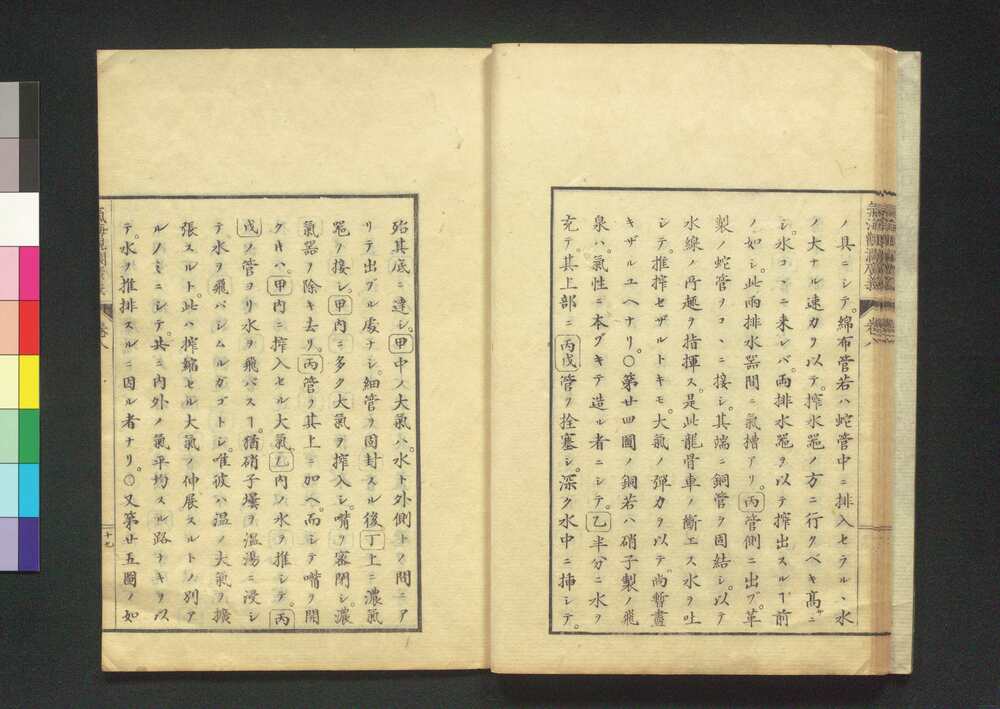 ノ具ニシテ。綿布管若ハ蛇管中ニ排入セラル、水
ノ大ナル速力ヲ以テ。搾水器ノ方ニ行クベキ高サニ
シ。水コヽニ来レバ。両排水器ヲ以テ搾出スルヿ前
ノ如シ。此両排水器間ニ氣槽アリ。丙管側ニ出ヅ。革
製ノ蛇管ヲコヽニ接シ。其端ニ銅管ヲ固結シ。以テ
水線ノ所趣ヲ指揮ス。是此龍骨車ノ断エス水ヲ吐
シテ。推搾セザルトキモ。大氣ノ弾力ヲ以テ尚暫盡
キザルユヘナリ。〇第廿四圖ノ銅若ハ硝子製ノ飛
泉ハ。氣性ニ本ヅキテ造ル者ニシテ。乙半分ニ水ヲ
充テ。其上部ニ丙戊管ヲ拴塞シ。深ク水中ニ挿シテ。
氣海觀瀾廣義 卷八
殆其底ニ達シ。甲中ノ大氣ハ。水ト外側トノ間ニア
リテ出ヅル處ナシ。細管ヲ固封スル後丁上ニ濃氣
器ヲ接シ。甲内ニ多ク大氣ヲ搾入シ。嘴ヲ密閉シ。濃
氣器ヲ除キ去リ。丙管ヲ其上ニ加ヘ。而シテ嘴ヲ開
クキハ。甲内ニ搾入セル大氣。乙内ノ水ヲ推シテ。丙
戊ノ管ヨリ水ヲ飛バスヿ。猶硝子壜ヲ温湯ニ浸シ
テ水ヲ飛バシムルガゴトシ。唯彼ハ温ノ大氣ヲ擴
張スルト。此ハ搾縮セル大氣ノ伸展スルトノ別ア
ルノミニシテ。共ニ内外ノ氣平均スル路ナキヲ以
テ。水ヲ推排スルニ因ル者ナリ。〇又第廿五圖ノ如
卷八
十七